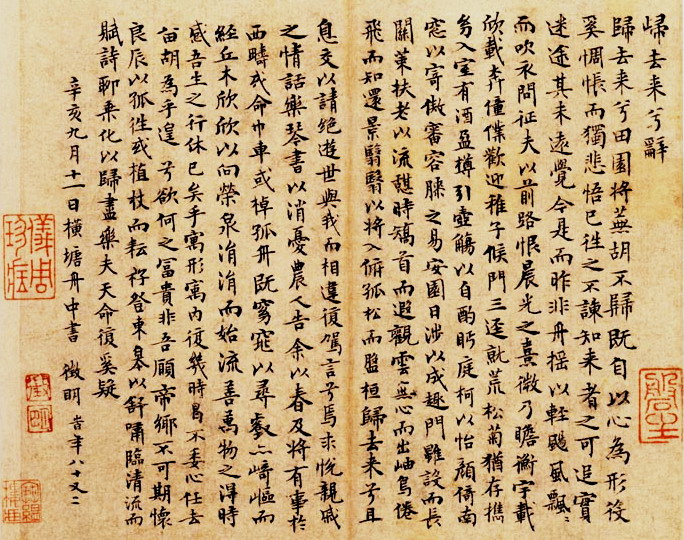 歸去来兮辭
歸去来兮田園将蕪胡不歸既自以心為形役
奚惆悵而獨悲悟已往之不諫知来者之可追寔
迷途其未遠覺今是而昨非舟摇以輕颺風飄〻
而吹衣問征夫以前路恨晨光之熹微乃瞻衡宇載
欣載奔僮僕歡迎稚子候門三逕就荒松菊猶存携
幼入室有酒盈樽引壺觴以自酌眄庭柯以怡顔倚南
窓以寄傲審容膝之易安園日涉以成趣門雖設而長
關策扶老以流憩時矯首而遐觀雲無心而出岫鳥倦
飛而知還景翳翳以将入撫孤松而盤桓歸去来兮且
息交以請絶遊世與我而相違復駕言兮焉求悅親戚
之情話樂琴書以消憂農人告余以春及将有事於
西疇或命巾車或棹孤舟既窈窕以尋壑亦崎嶇而
經丘木欣欣以向榮泉涓涓而始流善萬物之得時
感吾生之行休已矣乎寓形寓内復幾時曷不委心任去
留胡為乎遑兮欲何之冨貴非吾願帝鄉不可期懷
良辰以孤徃或植杖而耘耔登東皋以舒嘯臨清流而
賦詩聊乘化以歸盡樂夫天命復奚疑
辛亥九月十一日橫塘舟中書 徵明 旹年八十又二
儀周珍藏
徵明